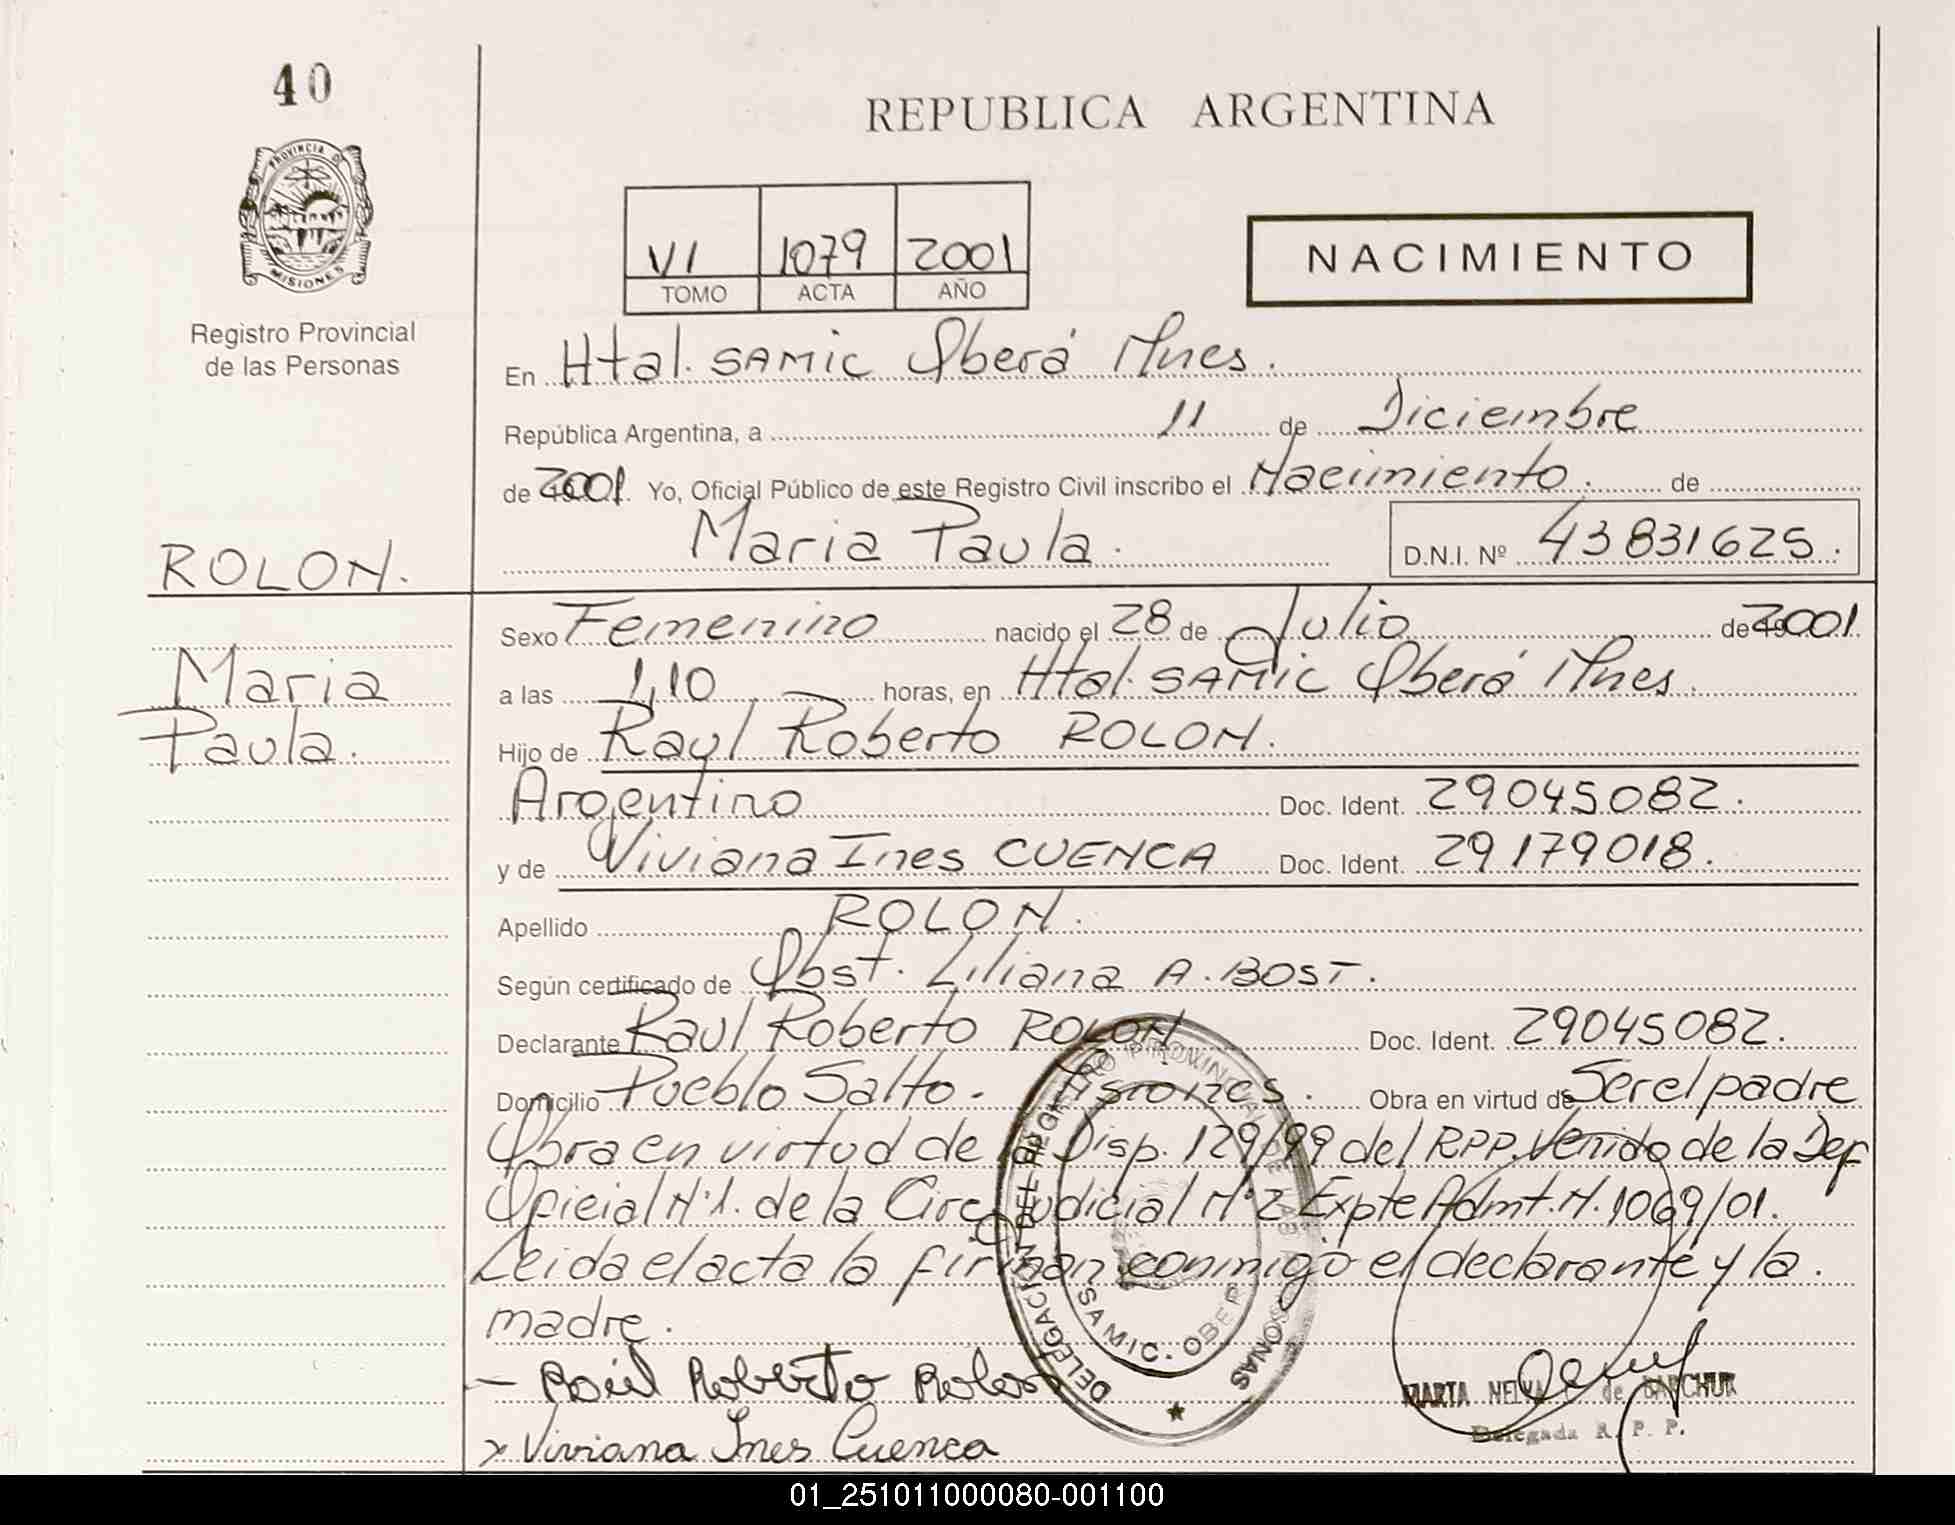 40
PROVINCIA DE
MISIONES
Registro Provincial
de las Personas
REPUBLICA ARGENTINA
VI 1079 2001
TOMO ACTA AÑO
NACIMIENTO
En Htal. SAMIC Oberá Mnes.
República Argentina, a 11 de Diciembre
de 2001. Yo, Oficial Público de este Registro Civil inscribo el Nacimiento. de
Maria Paula.
D.N.I. Nº 43831625.
ROLON.
Maria
Paula.
Sexo Femenino nacido el 28 de Julio de 2001
a las 1,10 horas, en Htal. SAMIC Oberá Mnes.
Hijo de Raul Roberto ROLON.
Argentino Doc. Ident. 29045082.
y de Viviana Ines CUENCA Doc. Ident. 29179018.
Apellido ROLON.
Según certificado de Obst. Liliana A. BOST.
Declarante Raul Roberto ROLON Doc. Ident. 29045082.
Domicilio Pueblo Salto. Misiones. Obra en virtud de Ser el padre
Obra en virtud de la Disp. 129/99 del RPP. Venido de la Def
Oficial Nº1. de la Circ Judicial Nº2 Expte Admt. N. 1069/01.
Leida el acta la firman conmigo el declarante y la.
madre.
- Raúl Roberto Rolon
x Viviana Ines Cuenca
DELEGACION DEL REGISTRO PROVINCIAL DE LAS PERSONAS
SAMIC. OBERA
MARTA NELVA de BARCHUK
Delegada R. P. P.
01_251011000080-001100